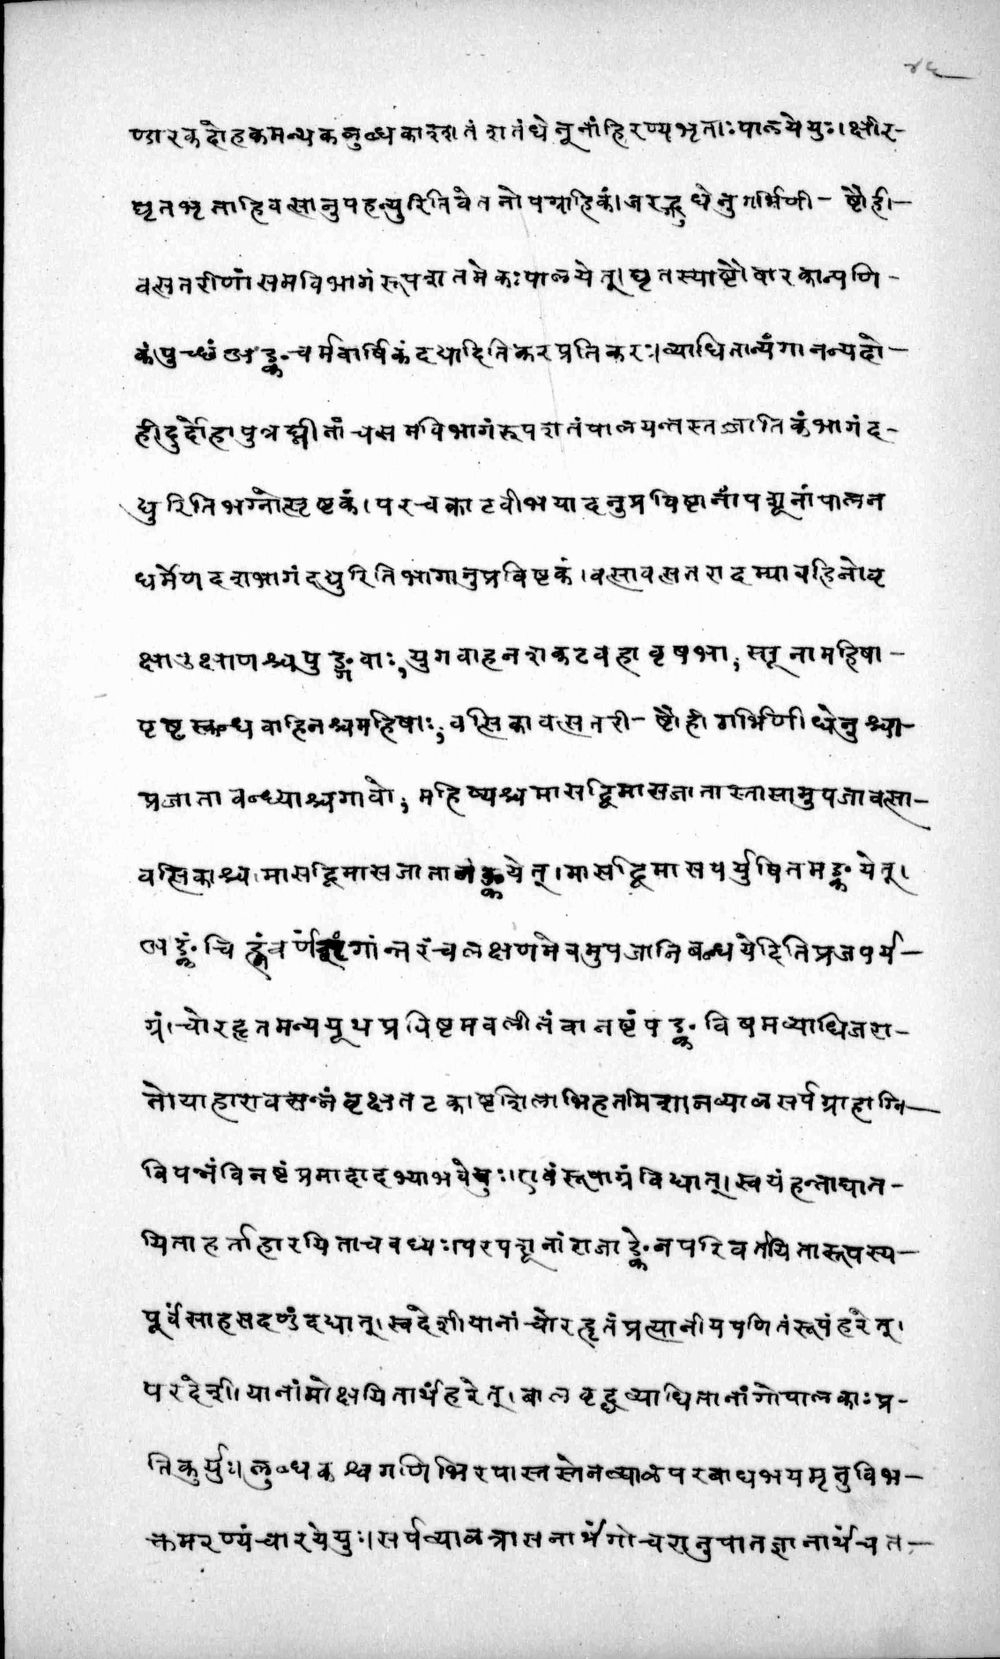 ४६
ण्डारकदोहकमन्थकलुब्धकाश्शतं शतंधेनूनांहिरण्यभृताःपालयेयुः।क्षीर-
घृतभृताहिवत्सानुपहन्युरितिवेतनोपग्राहिकं।जरद्गुधेनुगर्भिणी-ष्टौही-
वत्सतरीणांसमविभागंरूपशतमेकःपालयेत्।घृतस्याष्टौवारकान्पणि-
कंपुच्छंअङ्कचर्मवार्षिकंदद्यादितिकरप्रतिकरः।व्याधितान्यंगानन्यदो-
हीदुर्दोहापुत्रघ्नीनांचसमविभागंरूपशतंपालयन्तस्तज्जातिकंभागंद-
द्युरितिभग्नोत्सृष्टकं।परचक्राटवीभयादनुप्रविष्टानांपशूनांपालन
धर्मेणदशभागंदद्युरितिभागानुप्रविष्टकं।वत्सावत्सतरादम्यावहिनोवृ
क्षाउक्षाणश्चपुङ्गवाः,युगवाहनशकटवहावृषभा,सूनामहिषा-
पृष्टस्कन्धवाहिनश्चमहिषाः,वत्सिकावत्सतरी-ष्टौहीगर्भिणीधेनुश्चा-
प्रजातावन्ध्याश्चगावो,महिष्यश्चमासद्विमासजातास्तासामुपजावत्सा-
वत्सिकाश्च।मासद्विमासजातानंङ्कयेत्।मासद्विमासपर्युषितमङ्कयेत्।
अङ्कंचिह्नंवर्णंशृंगांन्तरंचलक्षणमेवमुपजानिबन्धयेदितिव्रजपर्य-
ग्रं।चोरहृतमन्ययूथप्रविष्टमवलीनंवानष्टंपङ्कविषमव्याधिजरा-
तोयाहारावसन्नंवृक्षतटकाष्टशिलाभिहतमिशानव्यालसर्पग्राहाग्नि-
विपन्नंविनष्टंप्रमादादभ्याभवेयुः।एवंरूपाग्रंविद्यात्।स्वयंहन्ताघात-
यिताहर्ताहारयिताचवध्यः।परपशूनांराजाङ्केनपरिवर्तयितारूपस्य-
पूर्वंसाहसदण्डंदद्यात्।स्वदेशीयानांचोरहृतंप्रत्यानीयपणितंरूपंहरेत्।
परदेशीयानांमोक्षयितार्थंहरेत्।बालवृद्धव्याधितानांगोपालकाः प्र-
तिकुर्युः।लुब्धकश्वगणिभिरपास्तस्तेनव्यालपरबाधभयमृतुविभ-
क्तमरण्यंचारयेयुः।सर्पव्यालत्रासनार्थंगोचरानुपातज्ञानार्थंचत-